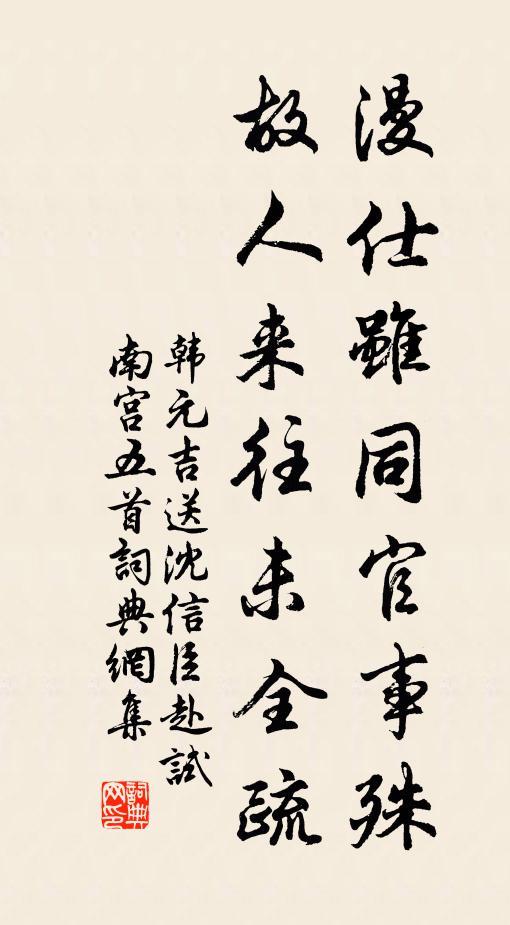 漫仕雖同官事殊
故人来往未全疏
韩元吉送沈信臣赴試
南宫五首詞典網集
詞典网印